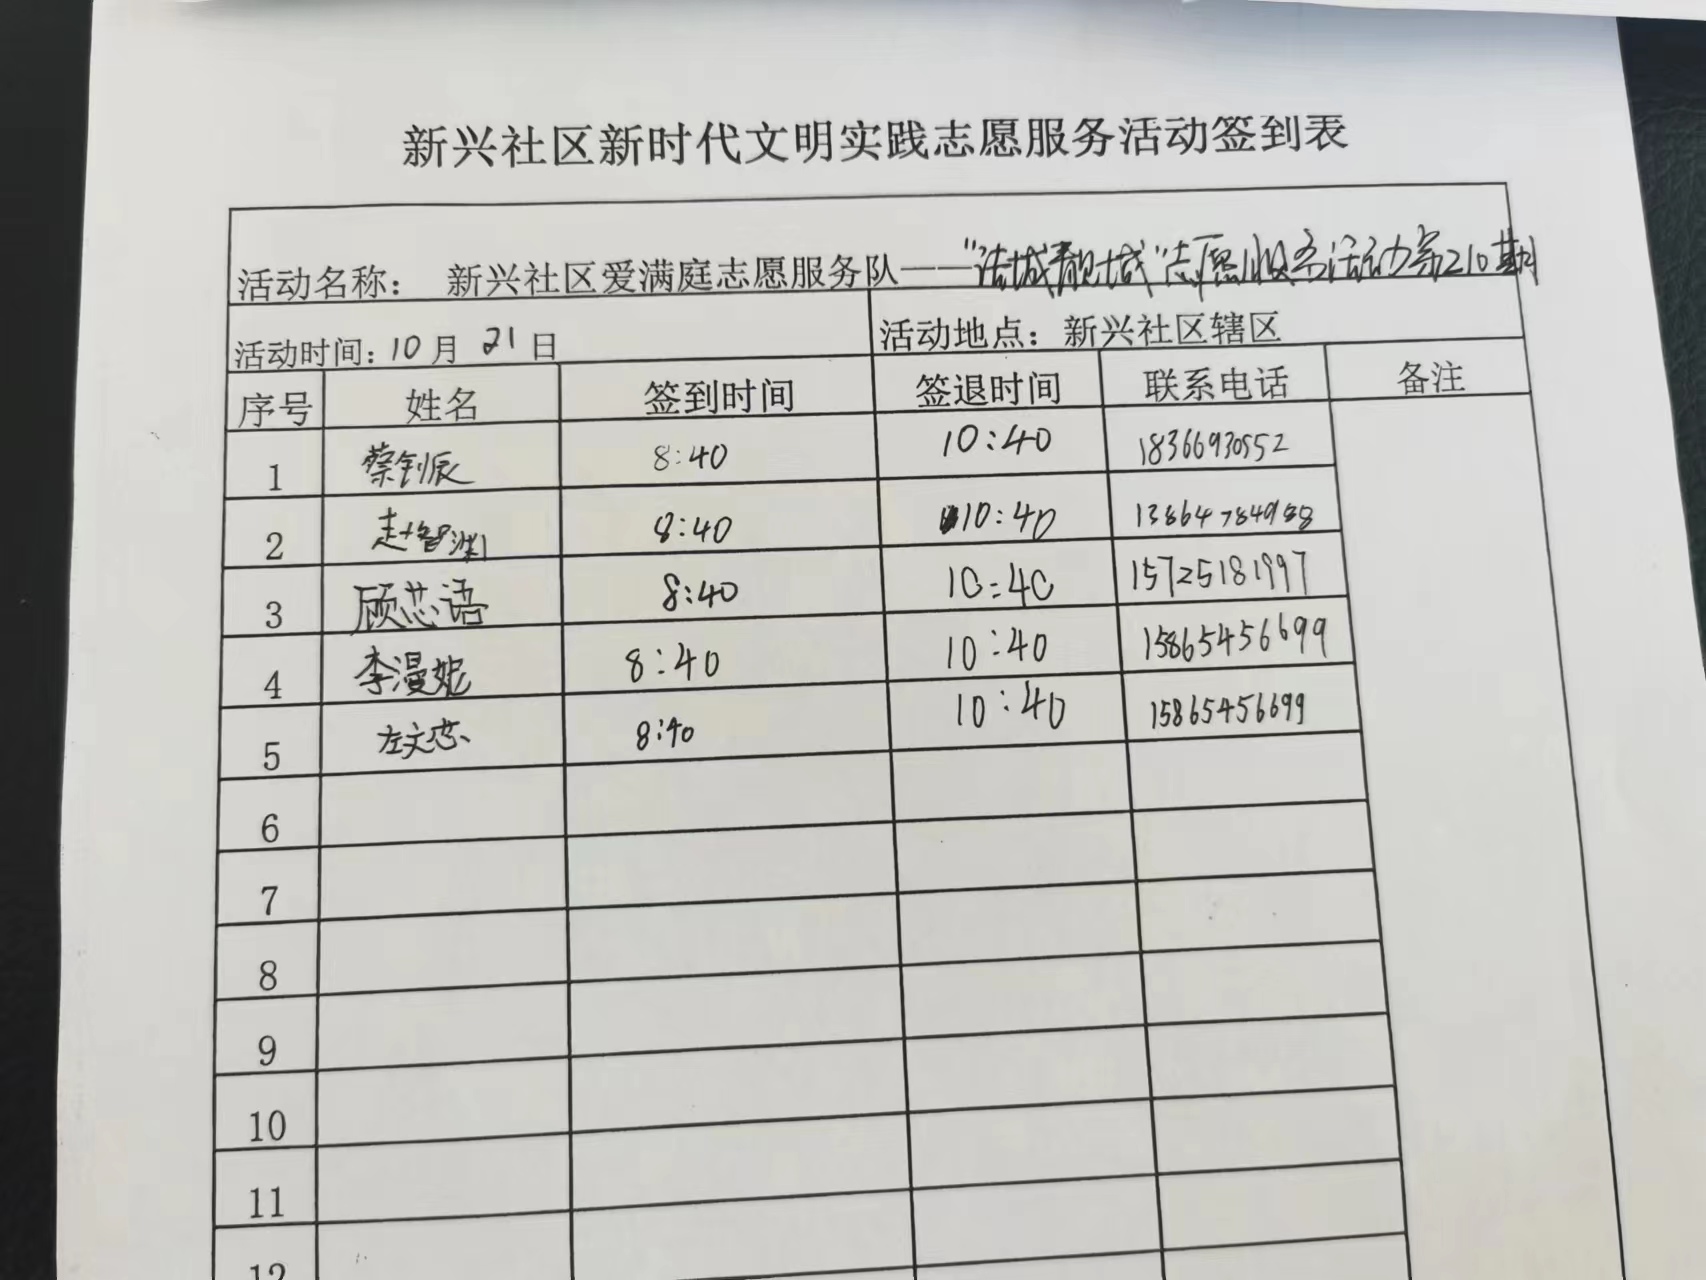 新兴社区新时代文明实践志愿服务活动签到表
活动名称： 新兴社区爱满庭志愿服务队——“洁城靓城”志愿服务活动第210期
活动时间：10月 21日 活动地点：新兴社区辖区
序号 姓名 签到时间 签退时间 联系电话 备注
1 蔡钊辰 8:40 10:40 18366930552
2 赵智渊 8:40 10:40 13864784988
3 顾芯语 8:40 10:40 15725181997
4 李漫妮 8:40 10:40 15865456699
5 左文芯 8:40 10:40 15865456699
6
7
8
9
10
11
12